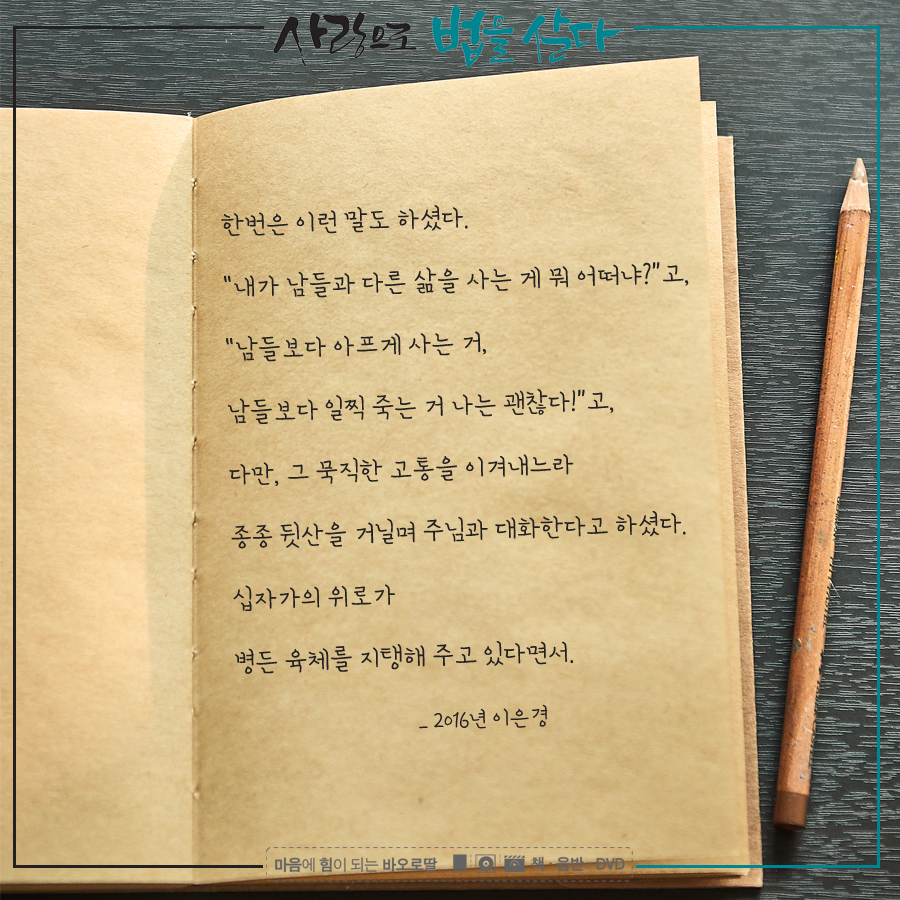 사랑으로 법을 살다
한번은 이런 말도 하셨다.
"내가 남들과 다른 삶을 사는 게 뭐 어떠냐?"고,
"남들보다 아프게 사는 거,
남들보다 일찍 죽는 거 나는 괜찮다!"고,
다만, 그 묵직한 고통을 이겨내느라
종종 뒷산을 거닐며 주님과 대화한다고 하셨다.
십자가의 위로가
병든 육체를 지탱해 주고 있다면서.
_ 2016년 이은경
마음에 힘이 되는 바오로딸 책·음반·DVD